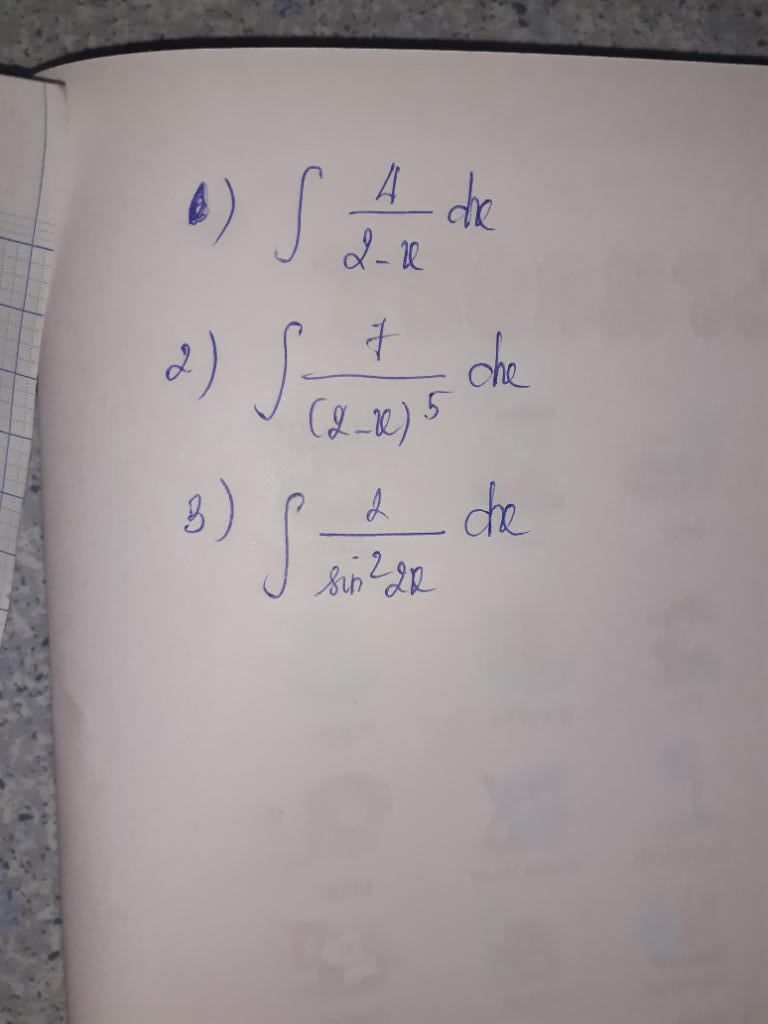 1) ∫ 4/(2-x) dx
2) ∫ 7/(2-x)^5 dx
3) ∫ 2/(sin^2 2x) dx